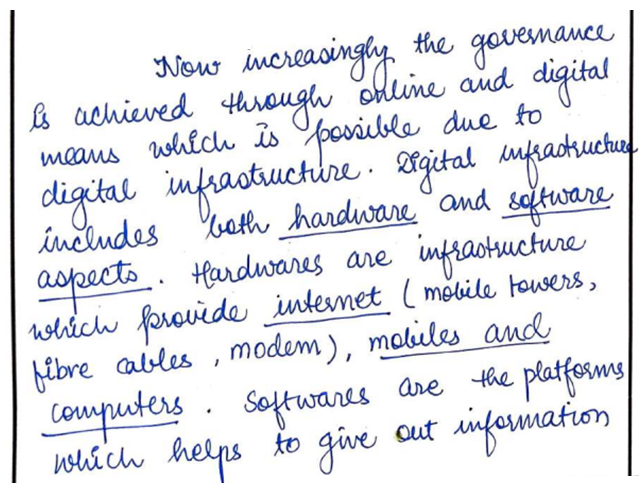 Now increasingly the governance
is achieved through online and digital
means which is possible due to
digital infrastructure. Digital infrastructure
includes both hardware and software
aspects. Hardwares are infrastructure
which provide internet (mobile towers,
fibre cables, modem), mobiles and
computers. Softwares are the platforms
which helps to give out information